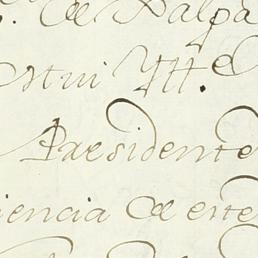 de Xalpa
Mui Ill.e
Praesidente
iencia de este